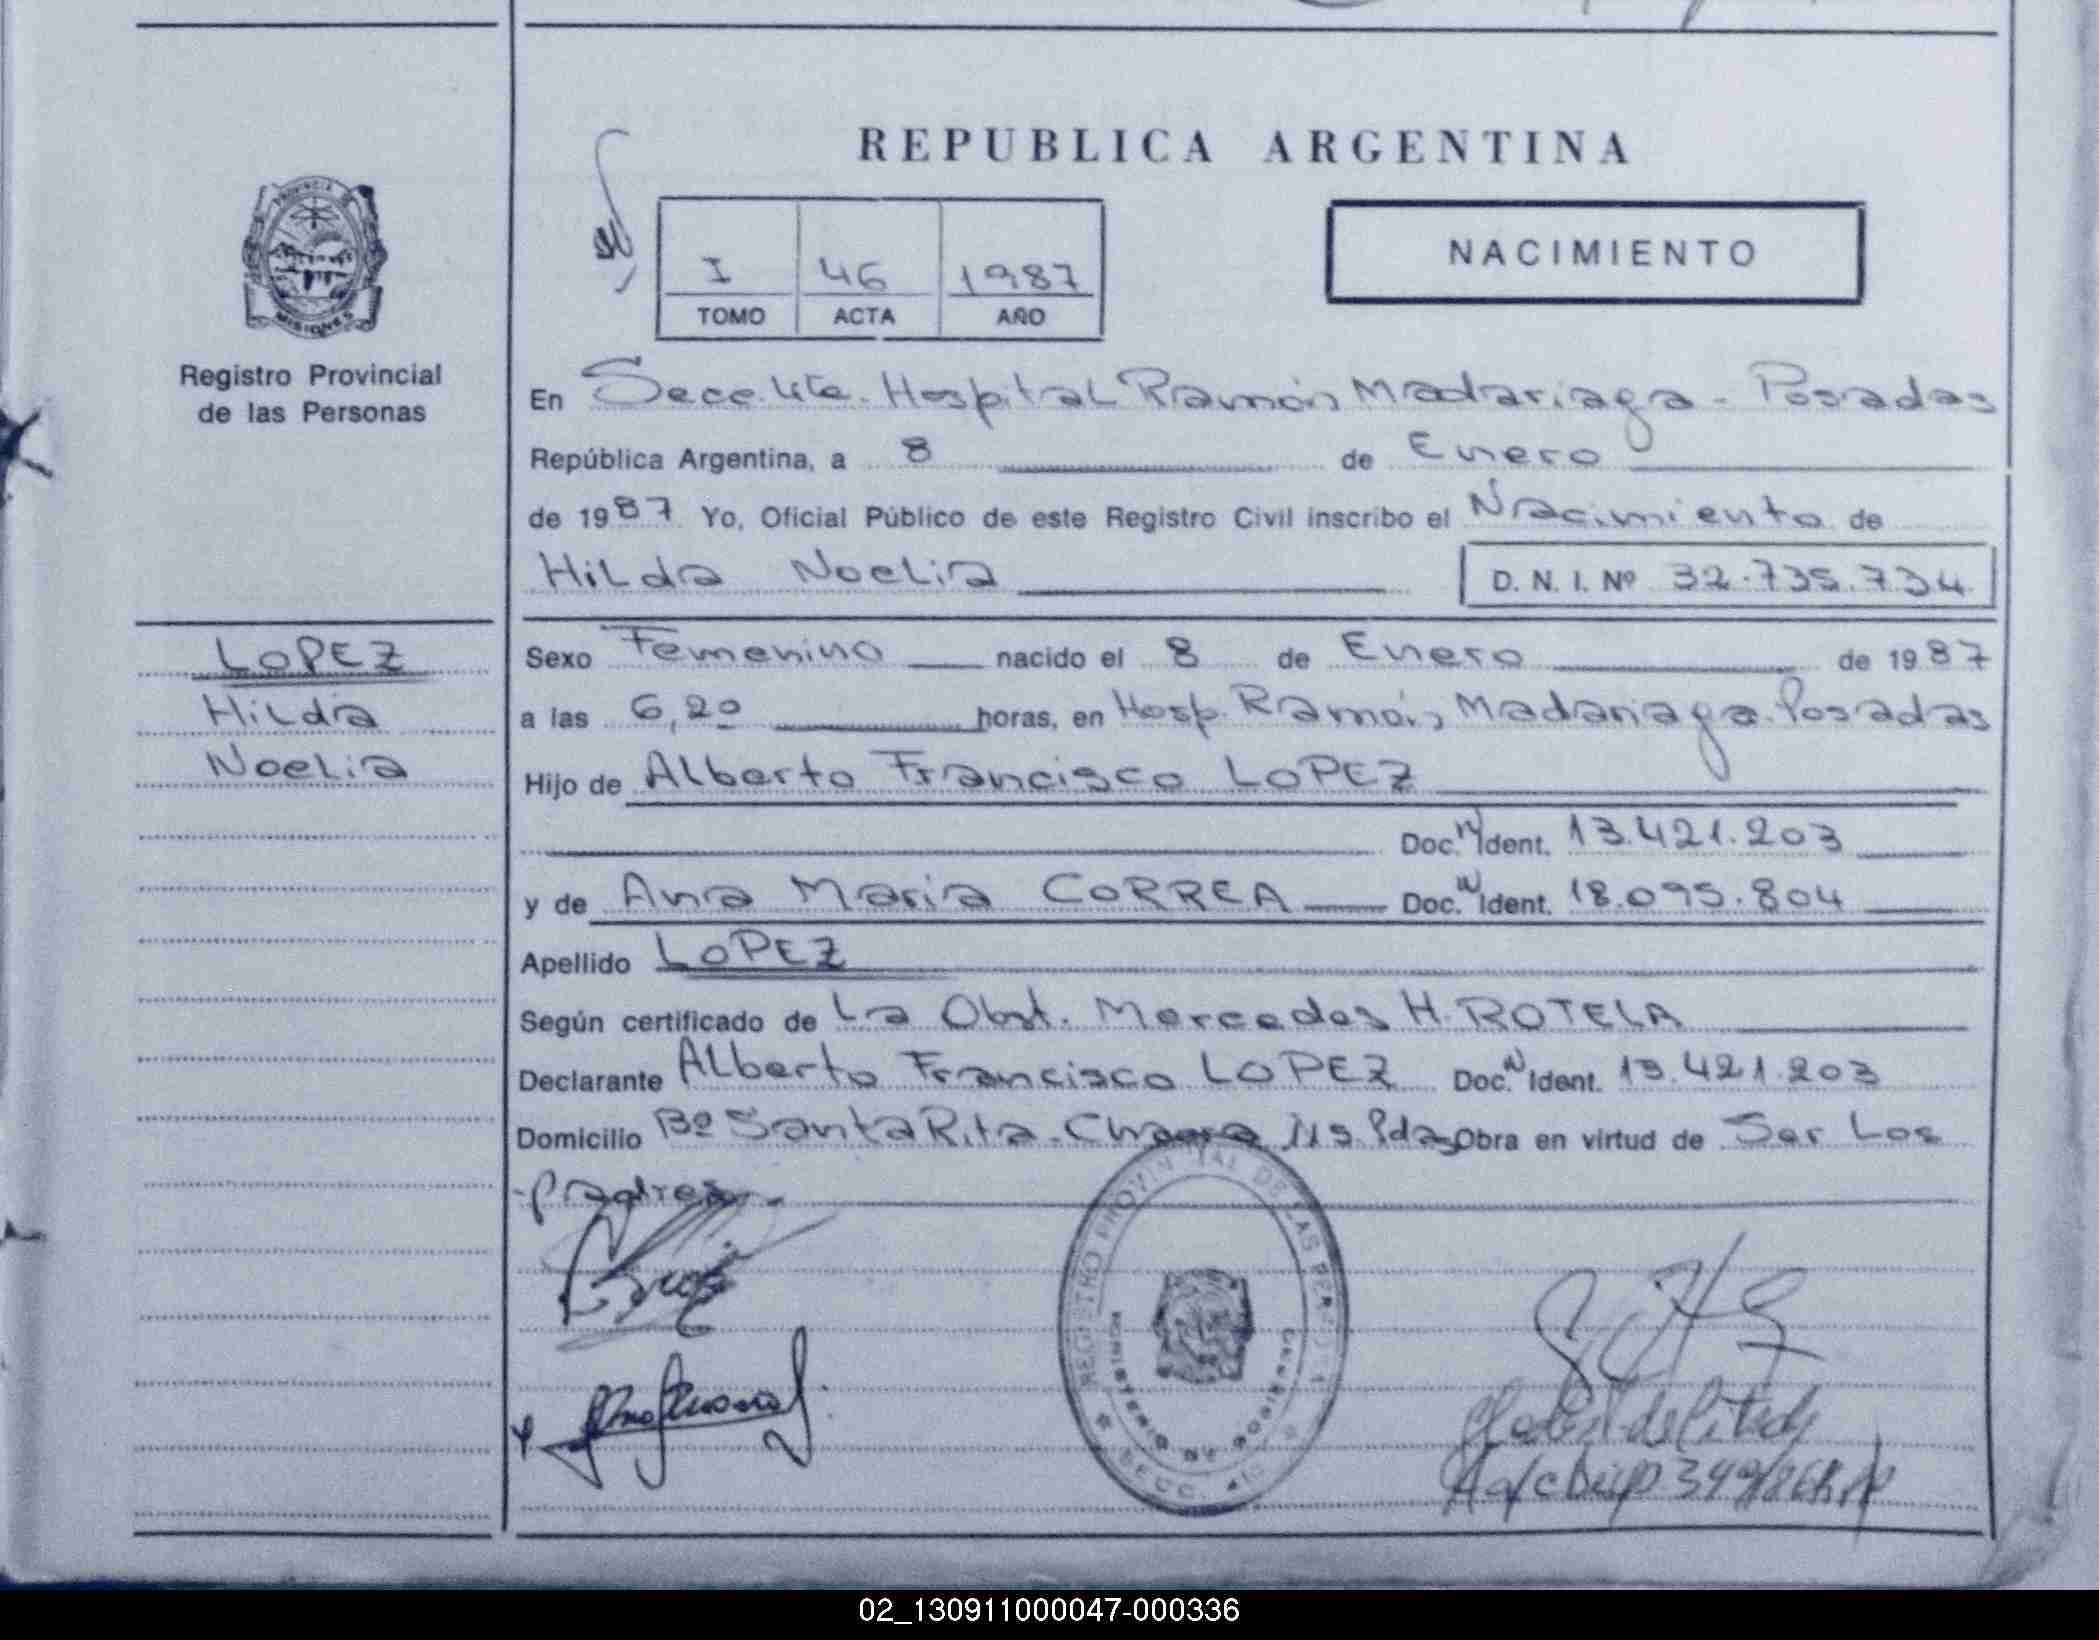 REPUBLICA ARGENTINA
NACIMIENTO
I 46 1987
TOMO ACTA AÑO
PROVINCIA DE
MISIONES
Registro Provincial
de las Personas
En Secc. 4ta. Hospital Ramón Madariaga - Posadas
República Argentina, a 8 de Enero
de 1987 Yo, Oficial Público de este Registro Civil inscribo el Nacimiento de
Hilda Noelia D. N. I. Nº 32.735.734
LOPEZ
Hilda
Noelia
Sexo Femenino nacido el 8 de Enero de 1987
a las 6,20 horas, en Hosp. Ramón Madariaga. Posadas
Hijo de Alberto Francisco LOPEZ
Doc. N Ident. 13.421.203
y de Ana Maria CORREA Doc. N Ident. 18.095.804
Apellido LOPEZ
Según certificado de La Obst. Mercedes H. ROTELA
Declarante Alberto Francisco LOPEZ Doc. N Ident. 13.421.203
Domicilio Bº Santa Rita. Chacra Pdas Obra en virtud de Ser Los
padres.-
REGISTRO PROVINCIAL DE LAS PERSONAS
MINISTERIO DE GOBIERNO
SECC.
02_130911000047-000336